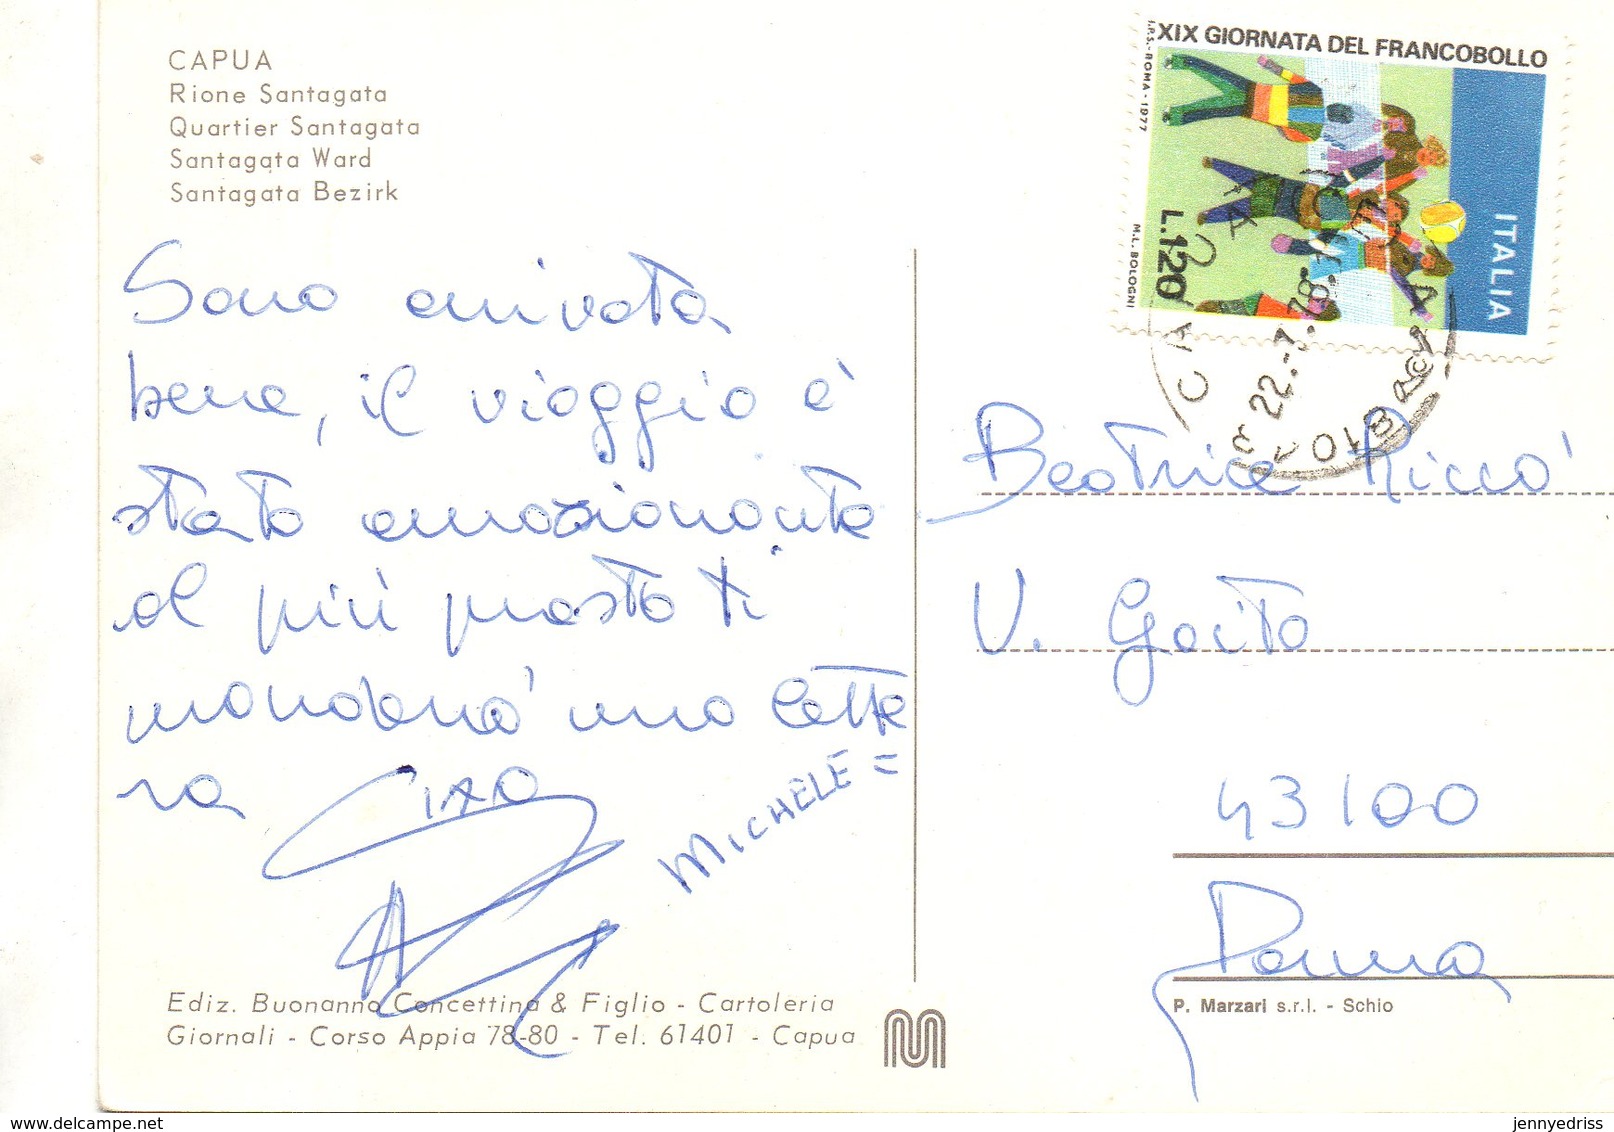 CAPUA
Rione Santagata
Quartier Santagata
Santagata Ward
Santagata Bezirk
XIX GIORNATA DEL FRANCOBOLLO
I.P.S.-ROMA-1977
ITALIA
L.120
M.L. BOLOGNI
22.-7.78
Sono arrivata
bene, il viaggio è
stato emozionante
al più presto ti
manderò una lette
ra Ciao
MICHELE =
Beatrice Riccò
V. Goito
43100
Parma
Ediz. Buonanno Concettina & Figlio - Cartoleria
Giornali - Corso Appia 78-80 - Tel. 61401 - Capua
P. Marzari s.r.l. - Schio
delcampe.net
jennyedriss